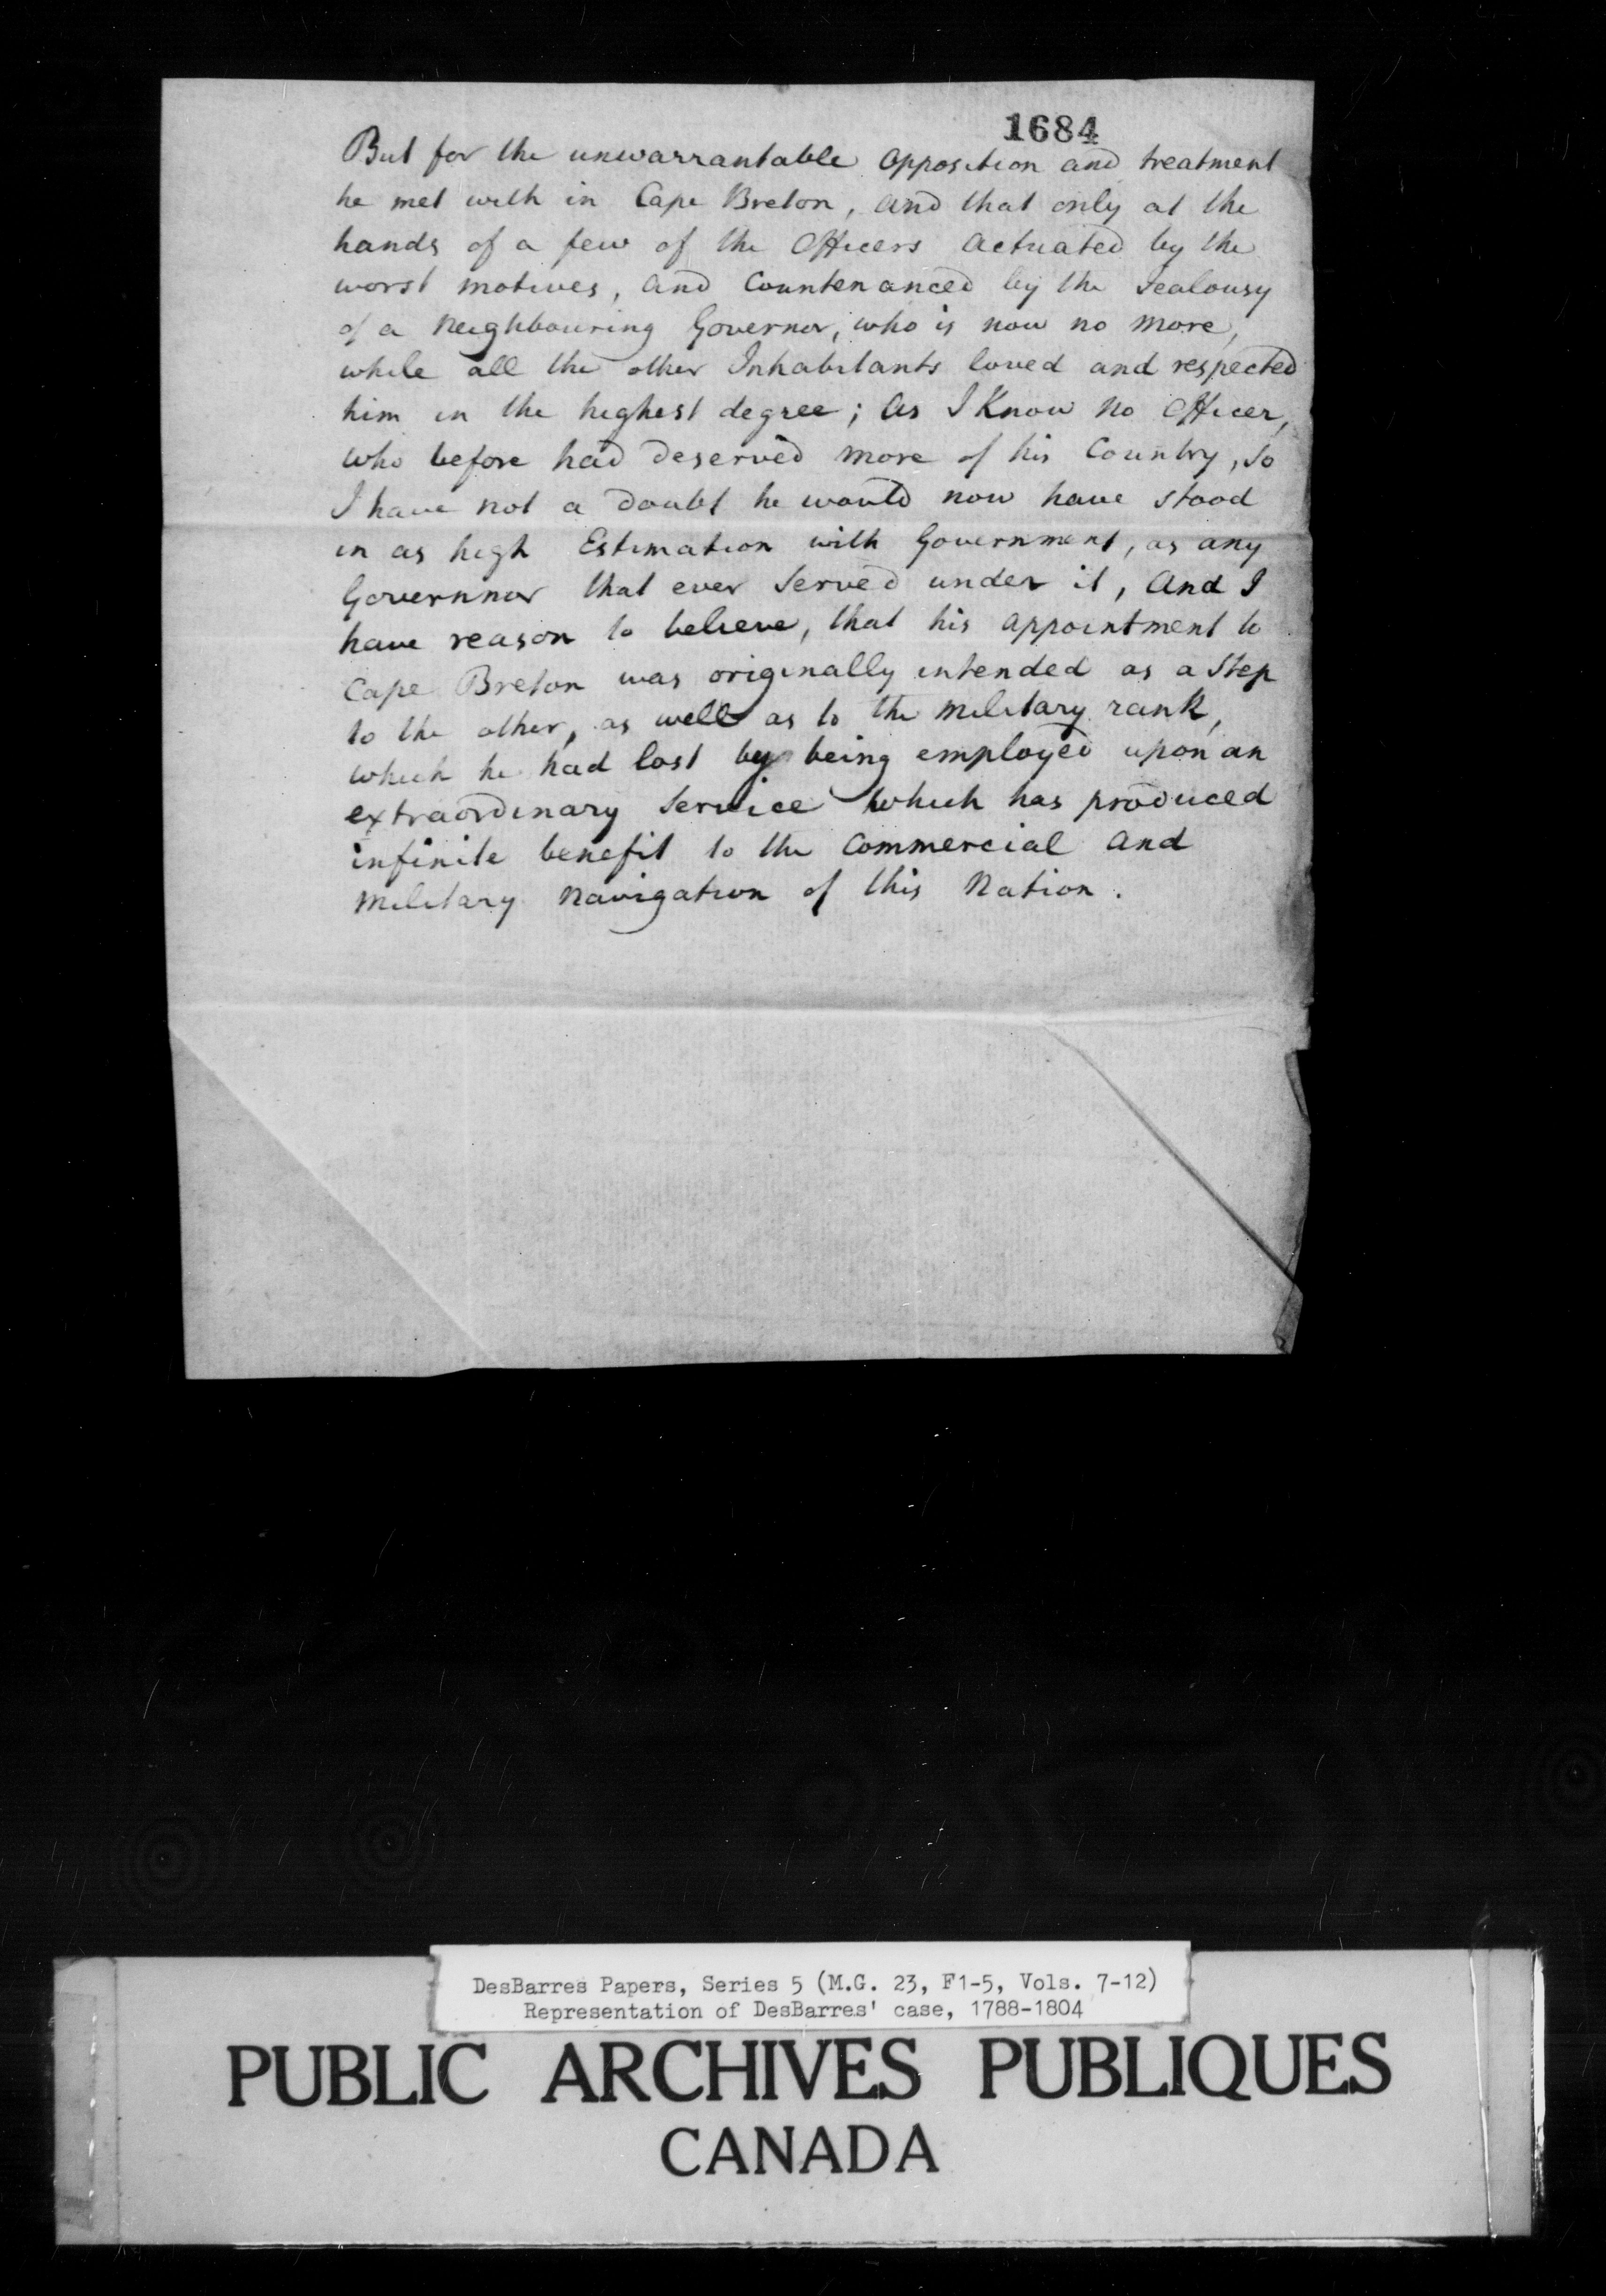 1684
But for the unwarrantable opposition and treatment
he met with in Cape Breton, and that only at the
hands of a few of the Officers actuated by the
worst motives, and Countenanced by the Jealousy
of a Neighbouring Governor, who is now no more,
while all the other Inhabitants loved and respected
him in the highest degree; as I Know no Officer,
who before had deserved more of his Country, so
I have not a doubt he would now have stood
in as high Estimation with Government, as any
Governnor that ever served under it, and I
have reason to believe, that his appointment to
Cape Breton was originally intended as a step
to the other, as well as to the military rank,
which he had lost by being employed upon an
extraordinary service which has produced
infinite benefit to the Commercial and
military Navigation of this Nation.
DesBarres Papers, Series 5 (M.G. 23, F1-5, Vols. 7-12)
Representation of DesBarres' case, 1788-1804
PUBLIC ARCHIVES PUBLIQUES
CANADA